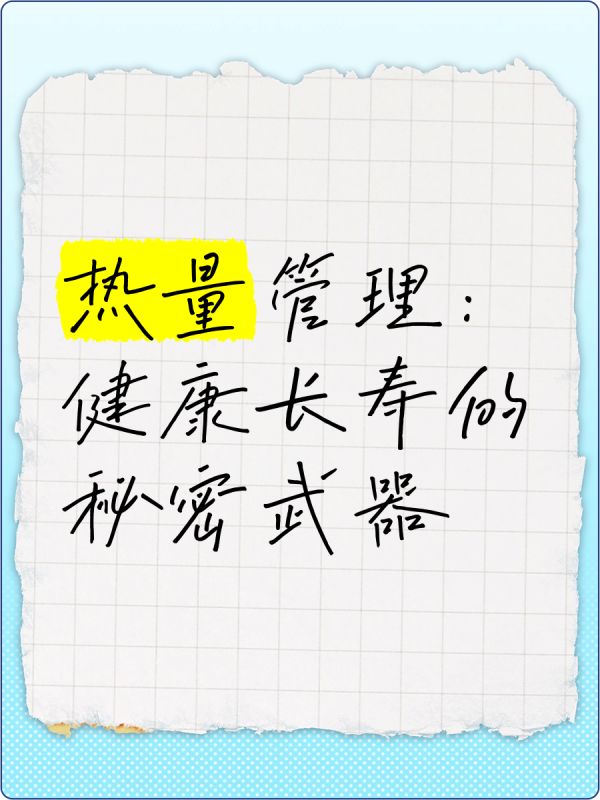 热量管理：
健康长寿的
秘密武器